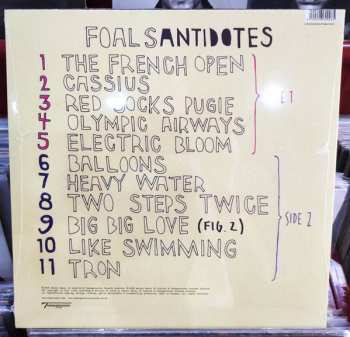 FOALS ANTIDOTES
1 THE FRENCH OPEN
2 CASSIUS
3 RED SOCKS PUGIE
4 OLYMPIC AIRWAYS
5 ELECTRIC BLOOM
6 BALLOONS
7 HEAVY WATER
8 TWO STEPS TWICE
9 BIG BIG LOVE (FIG. 2)
10 LIKE SWIMMING
11 TRON
SIDE 2